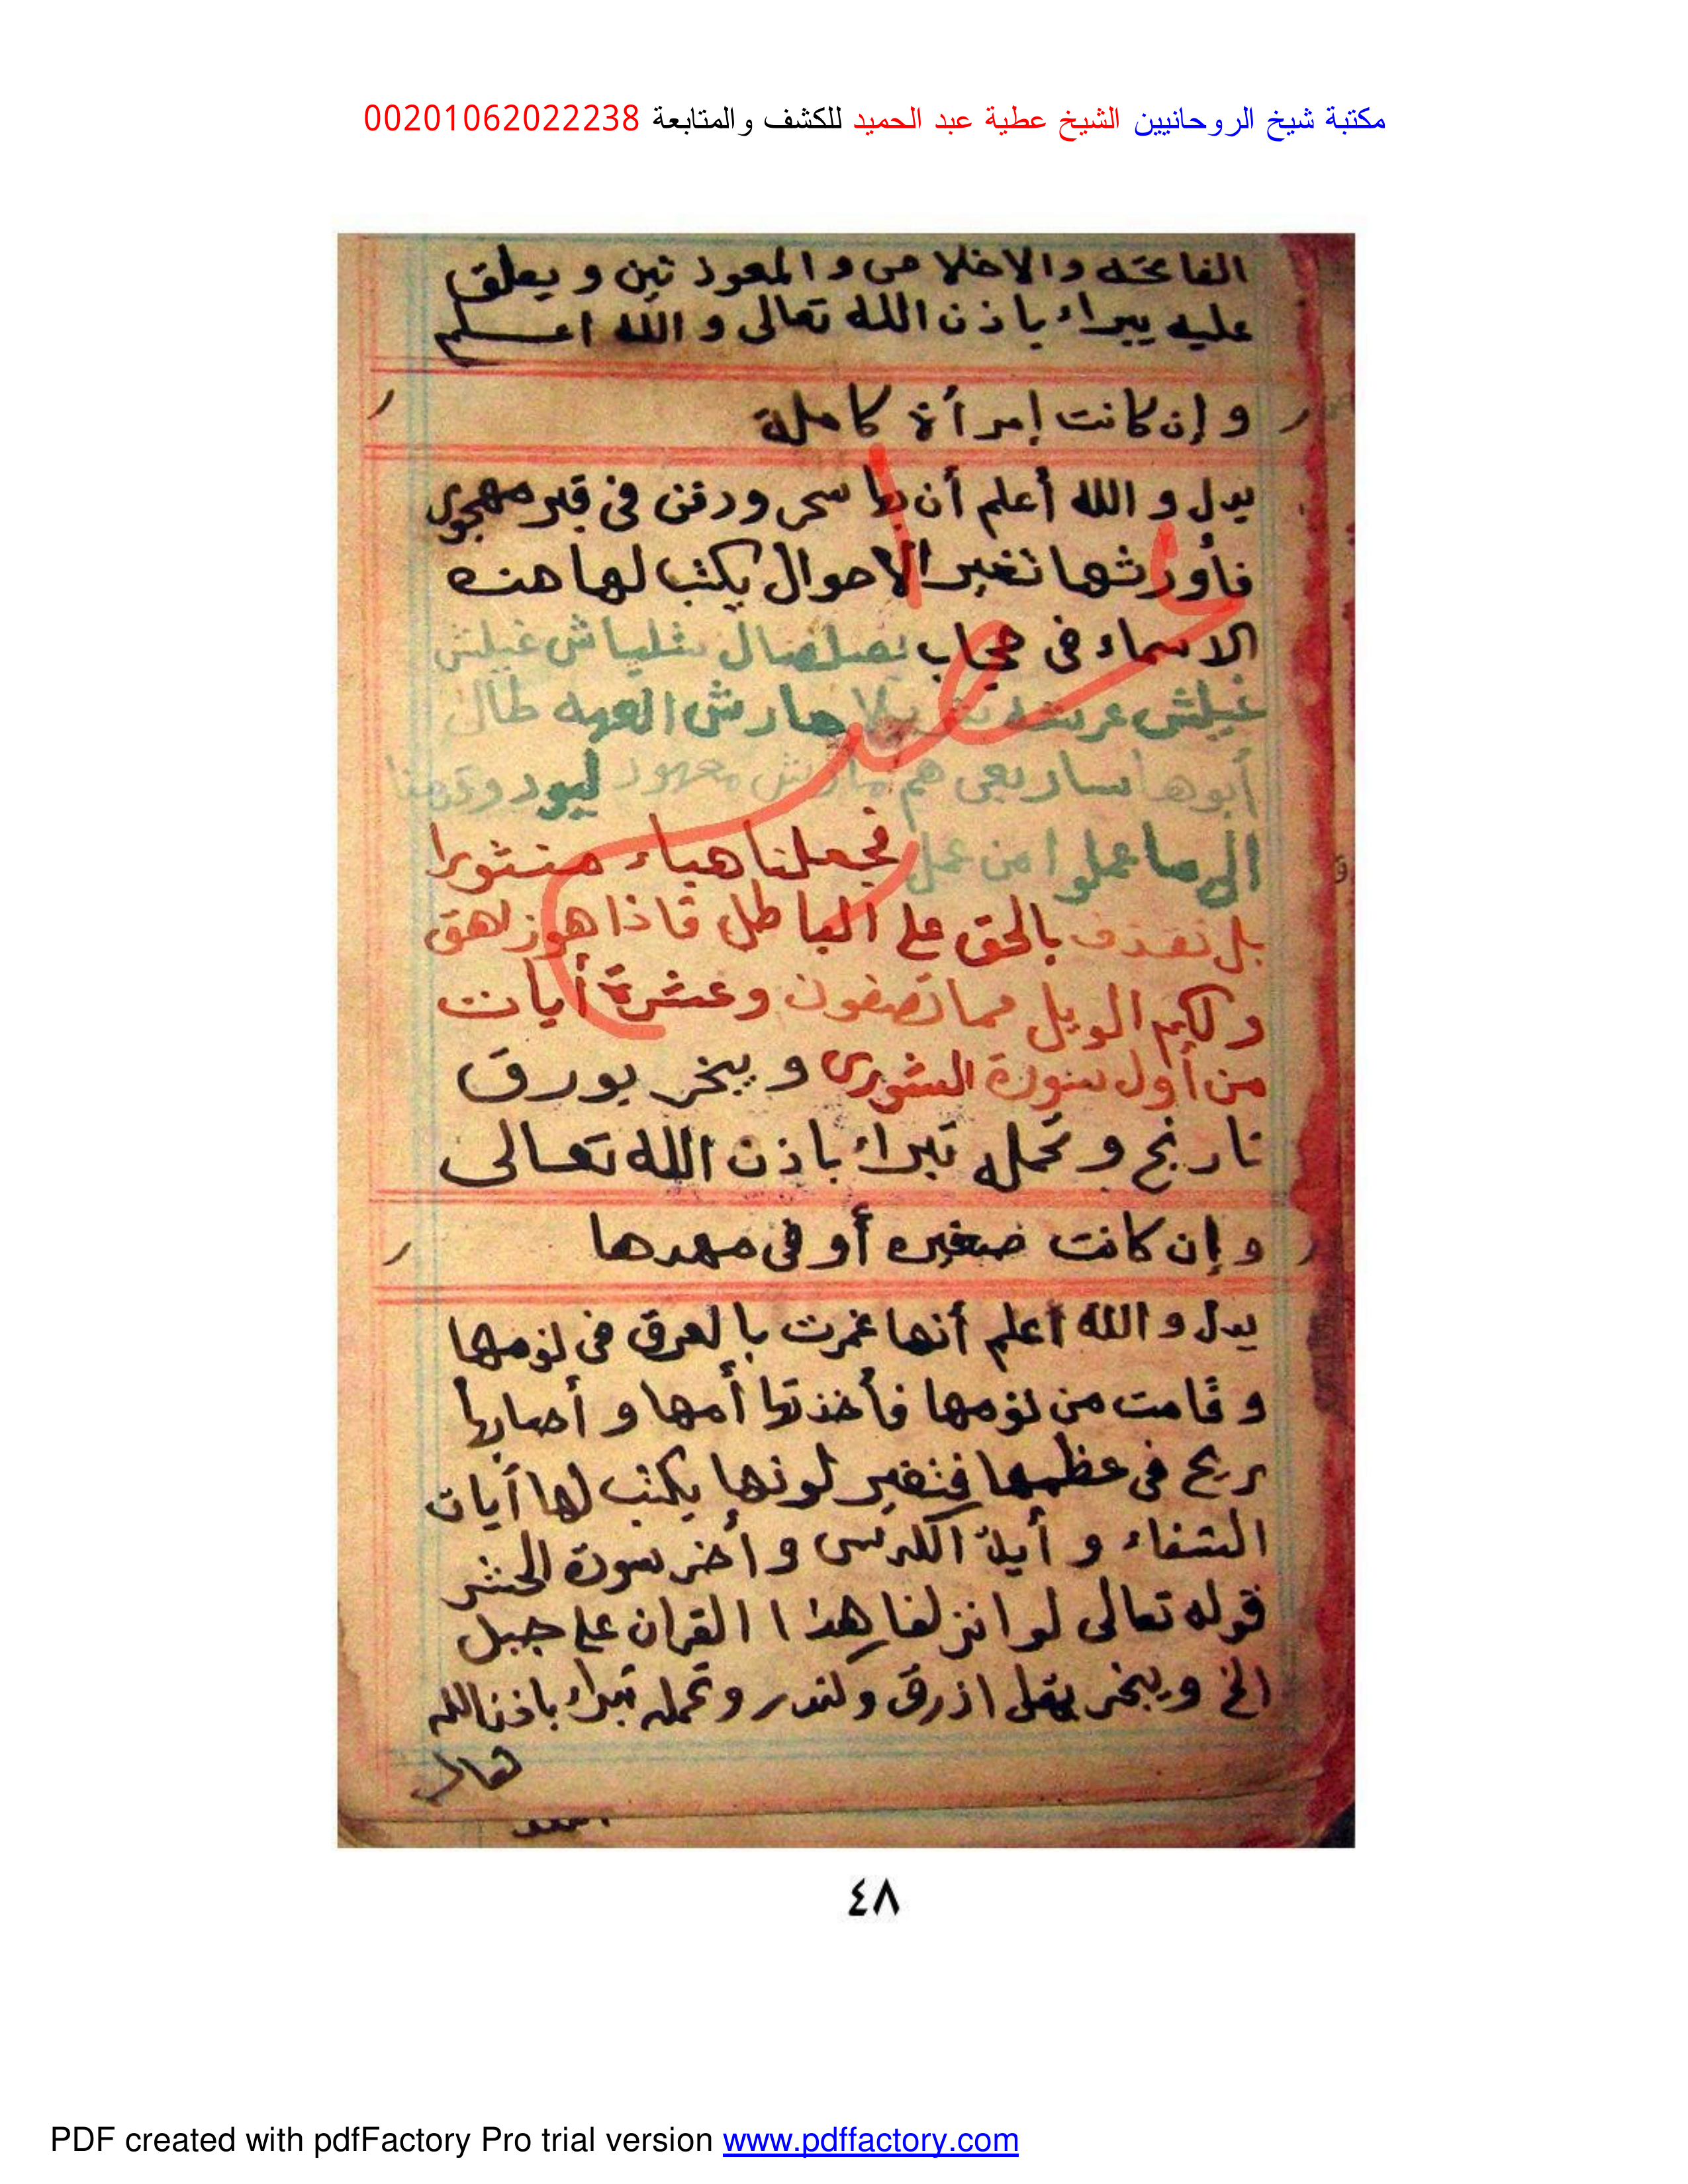 مكتبة شيخ الروحانيين الشيخ عطية عبد الحميد للكشف والمتابعة 00201062022238
الفاتحه والاخلاص والمعوذتين ويعلق
عليه يبراء باذن الله تعالى و الله اعلم
و إن كانت إمرأة كاملة
يدل و الله أعلم أن بها سحر ودفن فى قبر مهجور
فأورثها تغير الاحوال يكتب لها هذه
الاسماء فى حجاب
هارش العهه طال
أبوها معهود ليود وقدمنا
الى ما عملوا من عمل فجعلناه هباء منثورا
بل نقذف بالحق على الباطل فاذا هو زاهق
ولكم الويل مما تصفون وعشرة أيات
من أول سورة الشورى و يبخر بورق
نارنج و تحمله تبراء باذن الله تعالى
و إن كانت صغيره أو فى مهدها
يدل و الله أعلم أنها غمرت بالعرق فى نومها
و قامت من نومها فأخذتها أمها و أصابها
ريح فى عظمها فتغير لونها يكتب لها أيات
الشفاء و أية الكرسى و أخر سورة الحشر
قوله تعالى لو انزلنا هذا القران على جبل
الخ ويبخر بمقل ازرق ولندر وتحمله تبراء باذن الله
٤٨
PDF created with pdfFactory Pro trial version www.pdffactory.com